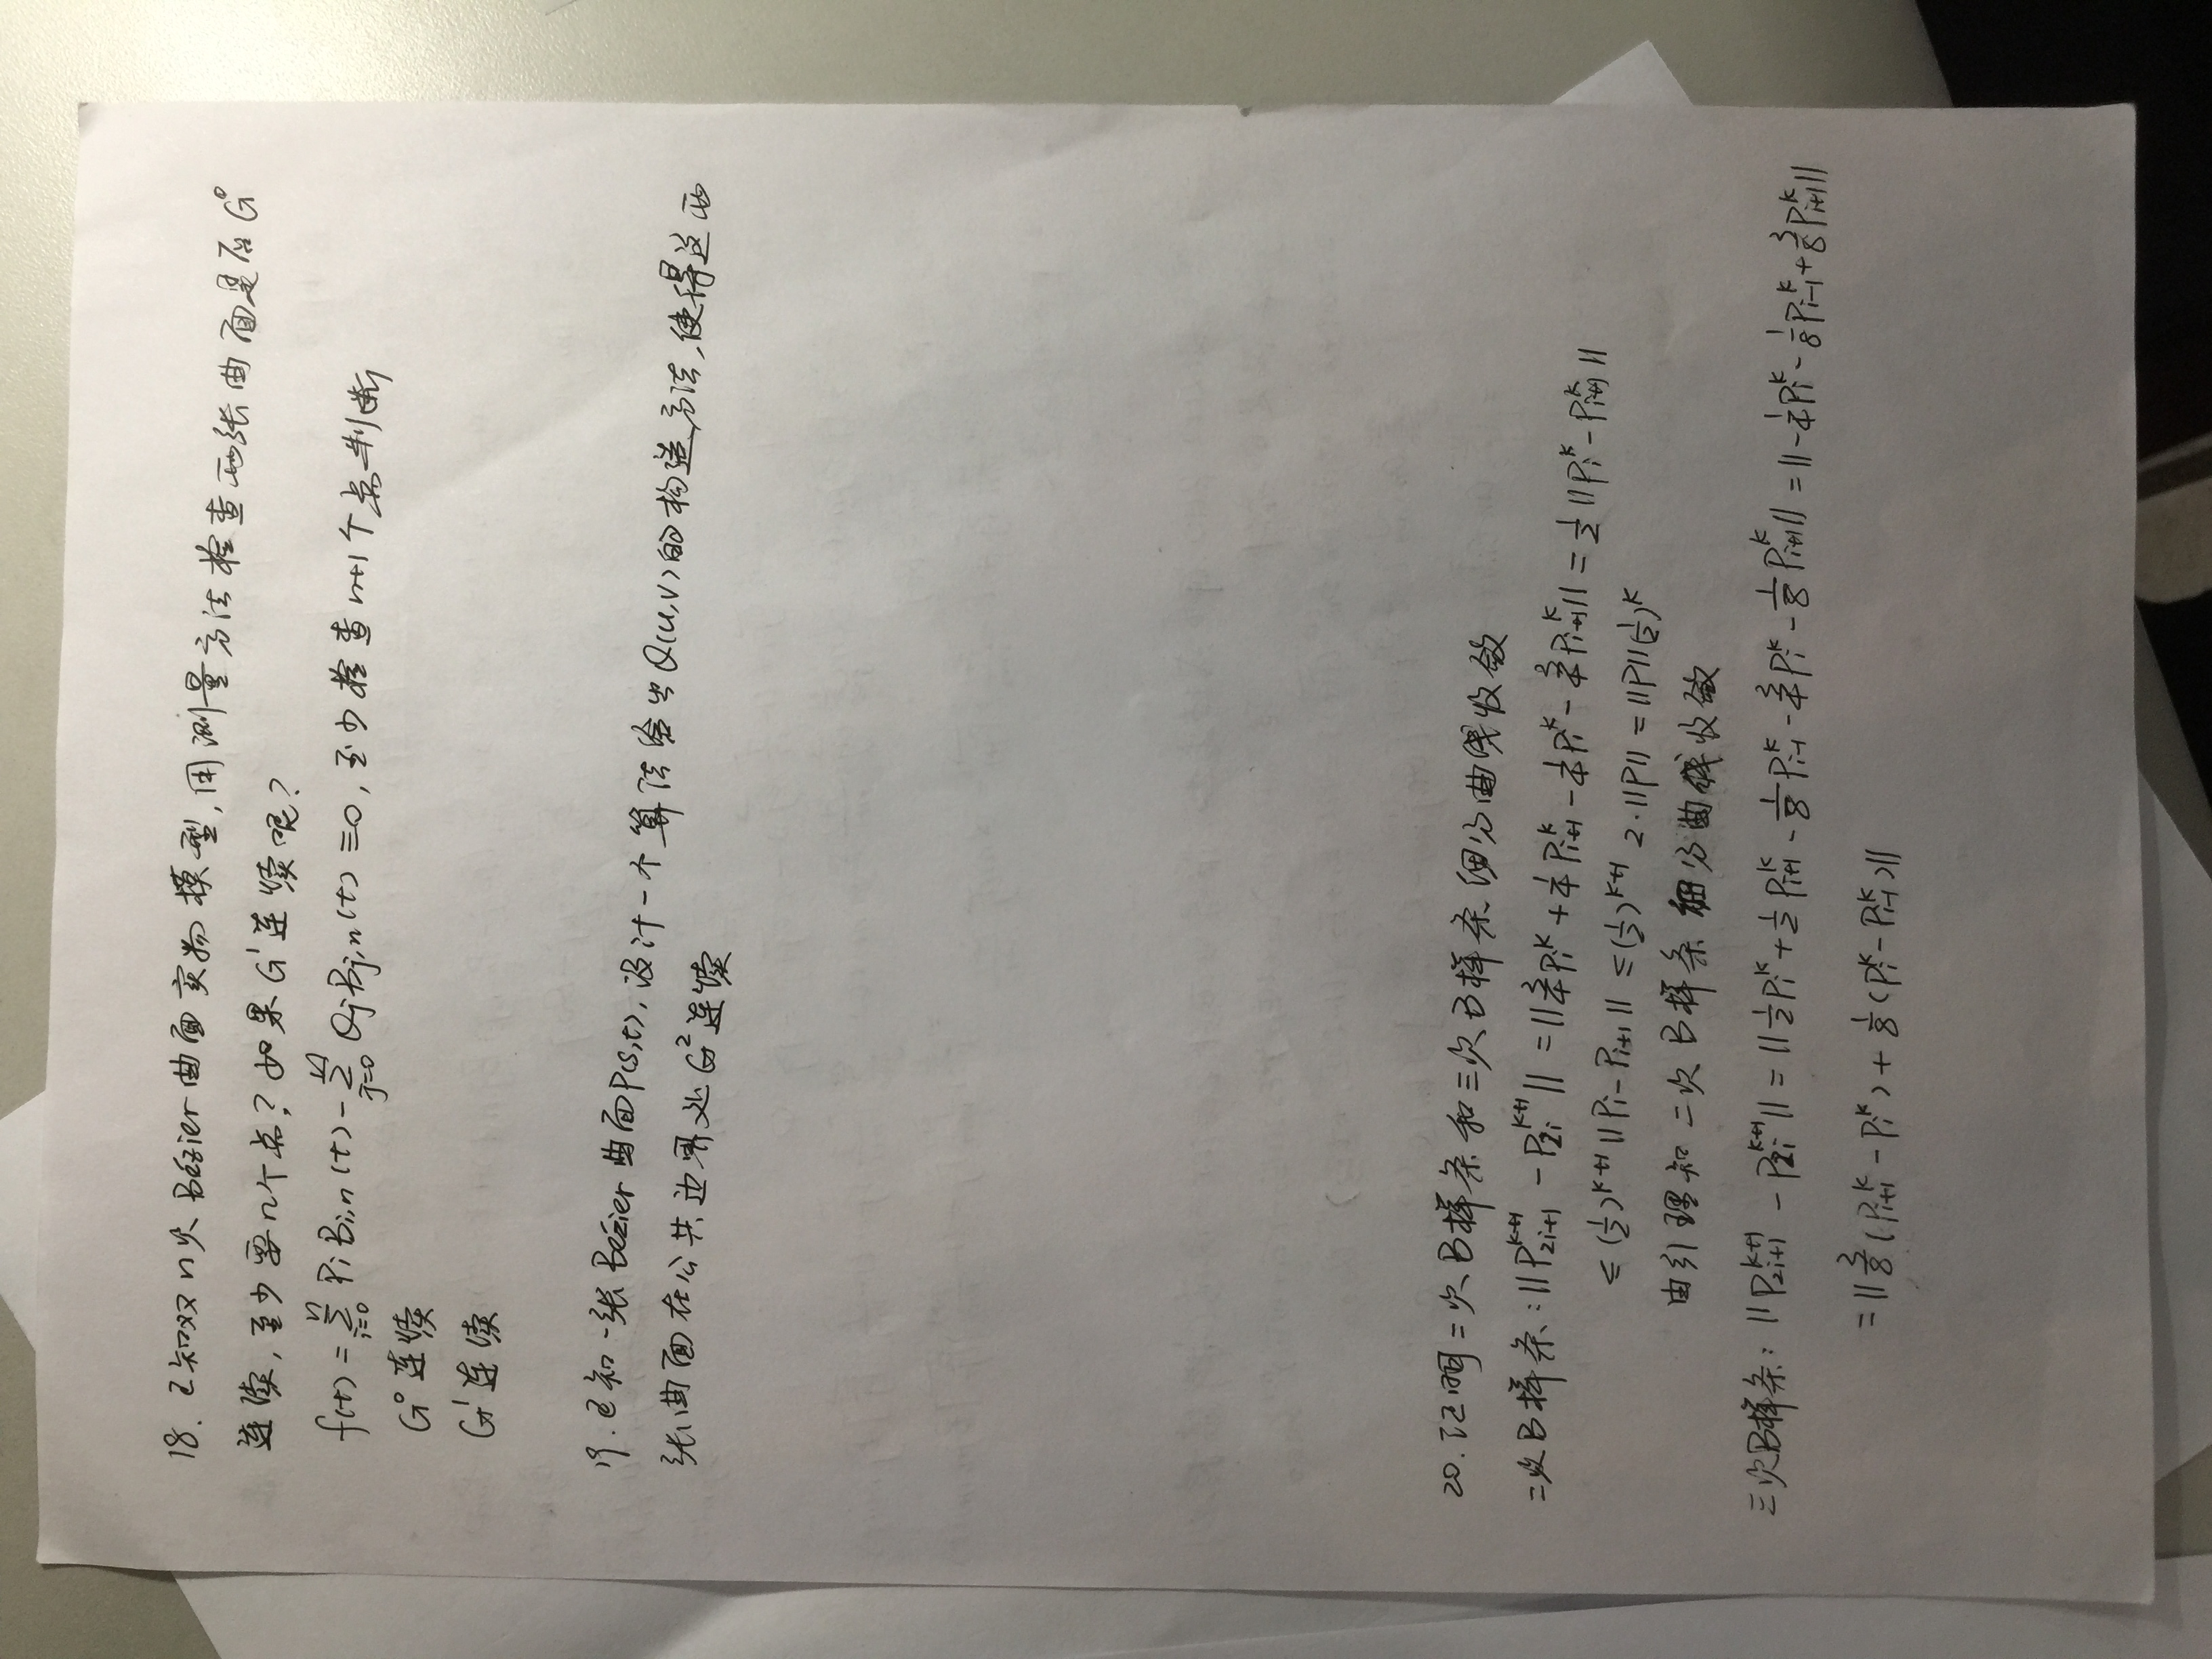 18. 已知双n次Bézier曲面实物模型,用测量方法检查两张曲面是否G⁰
连续,至少要几个点?如果G¹连续呢?
f(t) = \sum_{i=0}^{n} P_i B_{i,n}(t) - \sum_{j=0}^{n} Q_j B_{j,n}(t) ≡0, 至少检查n+1个点判断
G⁰连续
G¹连续
19. 已知一张Bézier曲面P(s,t), 设计一个算法给出Q(u,v)的构造方法,使得这两
张曲面在公共边界处G²连续
20. 证明二次B样条和三次B样条细分曲线收敛
二次B样条: ||P_{2i+1}^{k+1} - P_{2i}^{k+1}|| = ||\frac{3}{4}P_i^k + \frac{1}{4}P_{i+1}^k - \frac{1}{4}P_i^k - \frac{3}{4}P_{i+1}^k|| = \frac{1}{2}||P_i^k - P_{i+1}^k||
≤ (\frac{1}{2})^{k+1} ||P_i - P_{i+1}|| ≤ (\frac{1}{2})^{k+1} 2·||P|| = ||P||(\frac{1}{2})^k
由引理知二次B样条细分曲线收敛
三次B样条: ||P_{2i+1}^{k+1} - P_{2i}^{k+1}|| = ||\frac{1}{2}P_i^k + \frac{1}{2}P_{i+1}^k - \frac{1}{8}P_{i-1}^k - \frac{3}{4}P_i^k - \frac{1}{8}P_{i+1}^k|| = ||-\frac{1}{4}P_i^k - \frac{1}{8}P_{i-1}^k + \frac{3}{8}P_{i+1}^k||
= ||\frac{3}{8}(P_{i+1}^k - P_i^k) + \frac{1}{8}(P_i^k - P_{i-1}^k)||